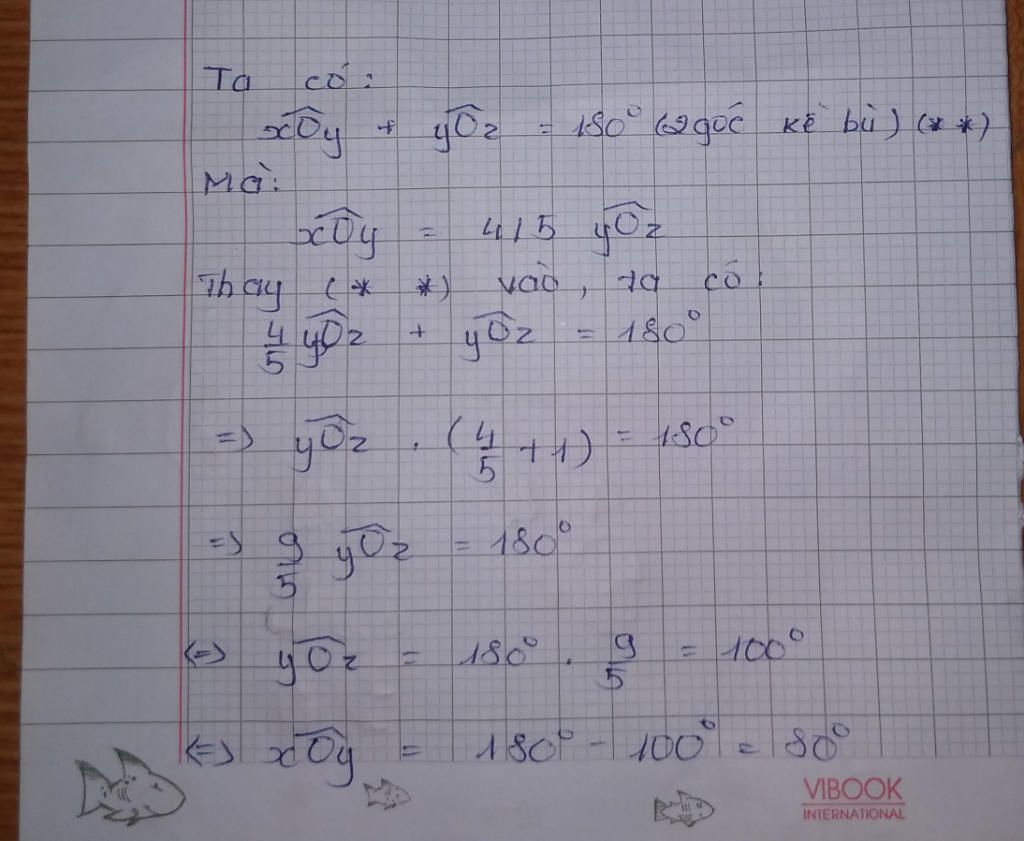 Ta có:
xOy + yOz = 180° (2 góc kề bù) (* *)
Mà:
xOy = 4/5 yOz
Thay (* *) vào, ta có:
4/5 yOz + yOz = 180°
=> yOz . (4/5 + 1) = 180°
=> 9/5 yOz = 180°
<=> yOz = 180° . 9/5 = 100°
<=> xOy = 180° - 100° = 80°
VIBOOK
INTERNATIONAL